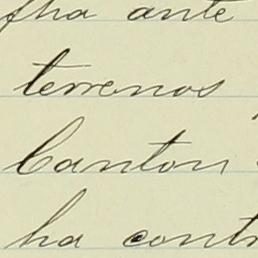 ha ante
terrenos
Canton
ha contr